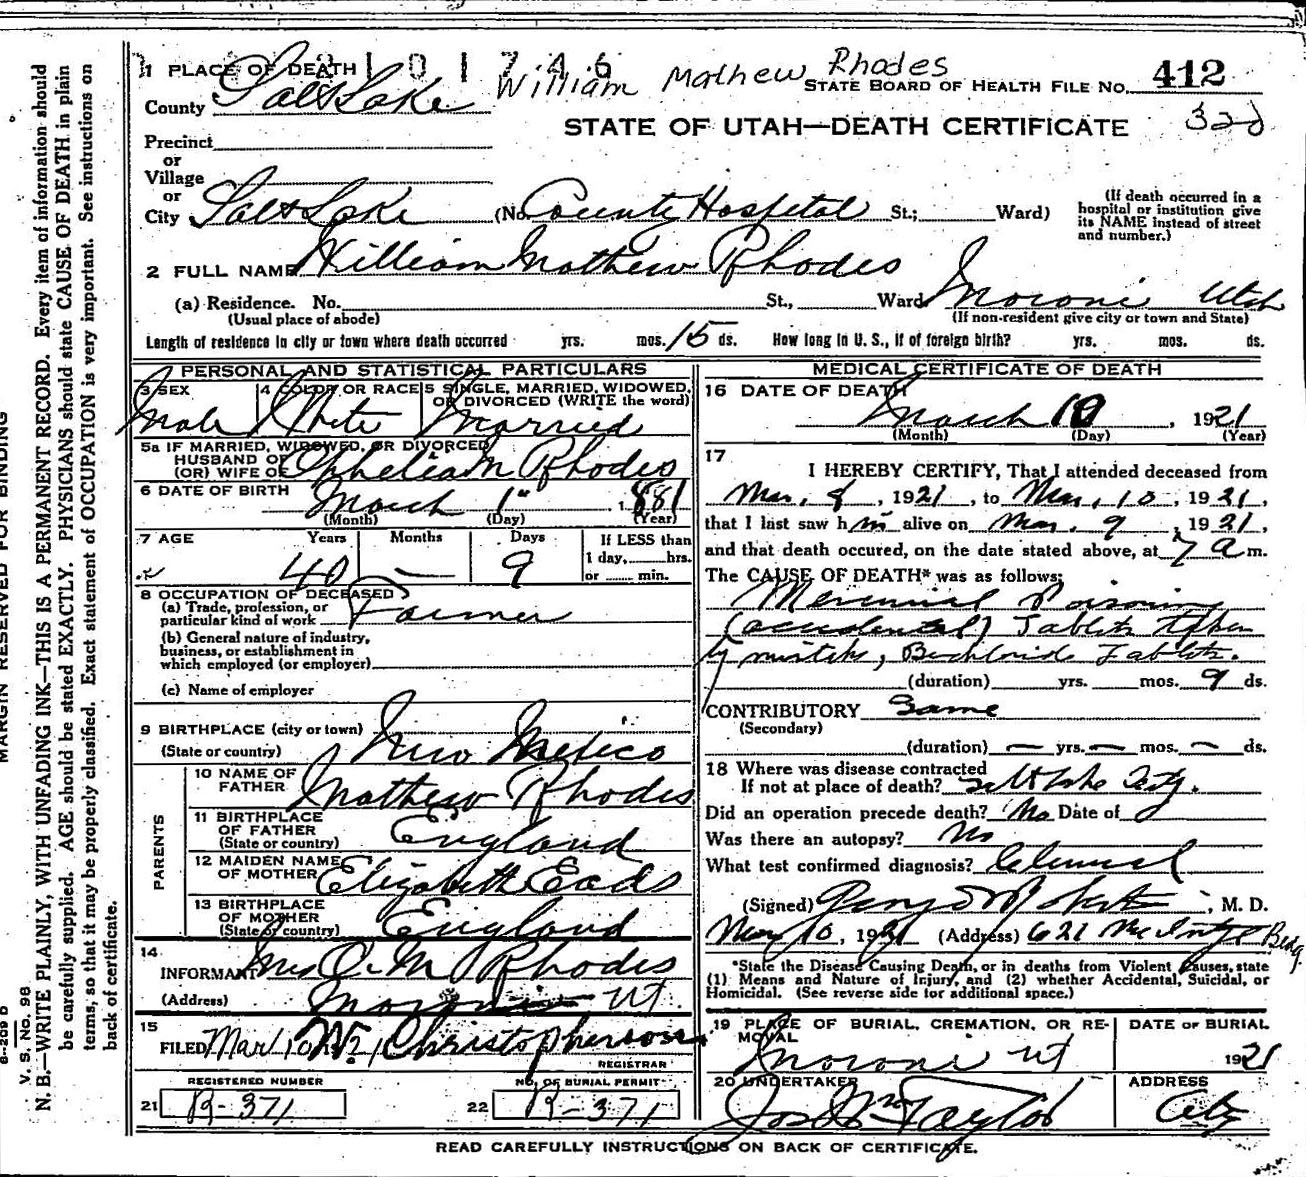 2101746
William Mathew Rhodes
1 PLACE OF DEATH
STATE BOARD OF HEALTH FILE NO. 412
County Salt Lake
STATE OF UTAH—DEATH CERTIFICATE
Precinct
or
Village
or
City Salt Lake (No. County Hospital St.; Ward)
(If death occurred in a hospital or institution give its NAME instead of street and number.)
2 FULL NAME William Mathew Rhodes
(a) Residence. No. St., Ward. Moroni Utah
(Usual place of abode) (If non-resident give city or town and State)
Length of residence in city or town where death occurred yrs. mos. 15 ds. How long in U. S., if of foreign birth? yrs. mos. ds.
PERSONAL AND STATISTICAL PARTICULARS
3 SEX 4 COLOR OR RACE 5 SINGLE, MARRIED, WIDOWED, OR DIVORCED (WRITE the word)
Male White Married
5a IF MARRIED, WIDOWED, OR DIVORCED
HUSBAND OF
(OR) WIFE OF Ophelia M Rhodes
6 DATE OF BIRTH March 1st, 1881
(Month) (Day) (Year)
7 AGE Years Months Days If LESS than
40 — 9 1 day, hrs.
or min.
8 OCCUPATION OF DECEASED
(a) Trade, profession, or
particular kind of work Farmer
(b) General nature of industry,
business, or establishment in
which employed (or employer)
(c) Name of employer
9 BIRTHPLACE (city or town)
(State or country) New Mexico
PARENTS
10 NAME OF
FATHER Mathew Rhodes
11 BIRTHPLACE
OF FATHER
(State or country) England
12 MAIDEN NAME
OF MOTHER Elizabeth Eads
13 BIRTHPLACE
OF MOTHER
(State or country) England
14
INFORMANT Mrs O. M. Rhodes
(Address) Moroni UT.
15
FILED Mar 10 1921 Christopherson
REGISTRAR
REGISTERED NUMBER NO. OF BURIAL PERMIT
21 R-371 22 R-371
MEDICAL CERTIFICATE OF DEATH
16 DATE OF DEATH
March 10, 1921
(Month) (Day) (Year)
17
I HEREBY CERTIFY, That I attended deceased from
Mar. 8, 1921, to Mar. 10, 1921,
that I last saw him alive on Mar. 9, 1921,
and that death occured, on the date stated above, at 7 a m.
The CAUSE OF DEATH* was as follows:
Mercurial Poisoning
(accidental) Tablets taken
by mistake, Bichloride Tablets.
(duration) yrs. mos. 9 ds.
CONTRIBUTORY Same
(Secondary)
(duration) — yrs. — mos. — ds.
18 Where was disease contracted
If not at place of death? Salt Lake City.
Did an operation precede death? No Date of
Was there an autopsy? No
What test confirmed diagnosis? Clinical
(Signed) , M. D.
Mar 10, 1921 (Address) 621 McIntyre Bldg.
*State the Disease Causing Death, or in deaths from Violent Causes, state
(1) Means and Nature of Injury, and (2) whether Accidental, Suicidal, or
Homicidal. (See reverse side for additional space.)
19 PLACE OF BURIAL, CREMATION, OR RE- DATE OF BURIAL
MOVAL
Moroni UT 1921
20 UNDERTAKER ADDRESS
Jos Wm Taylor City
READ CAREFULLY INSTRUCTIONS ON BACK OF CERTIFICATE.
MARGIN RESERVED FOR BINDING
V. S. No. 98
N. B.—WRITE PLAINLY, WITH UNFADING INK—THIS IS A PERMANENT RECORD. Every item of information should
be carefully supplied. AGE should be stated EXACTLY. PHYSICIANS should state CAUSE OF DEATH in plain
terms, so that it may be properly classified. Exact statement of OCCUPATION is very important. See instructions on
back of certificate.